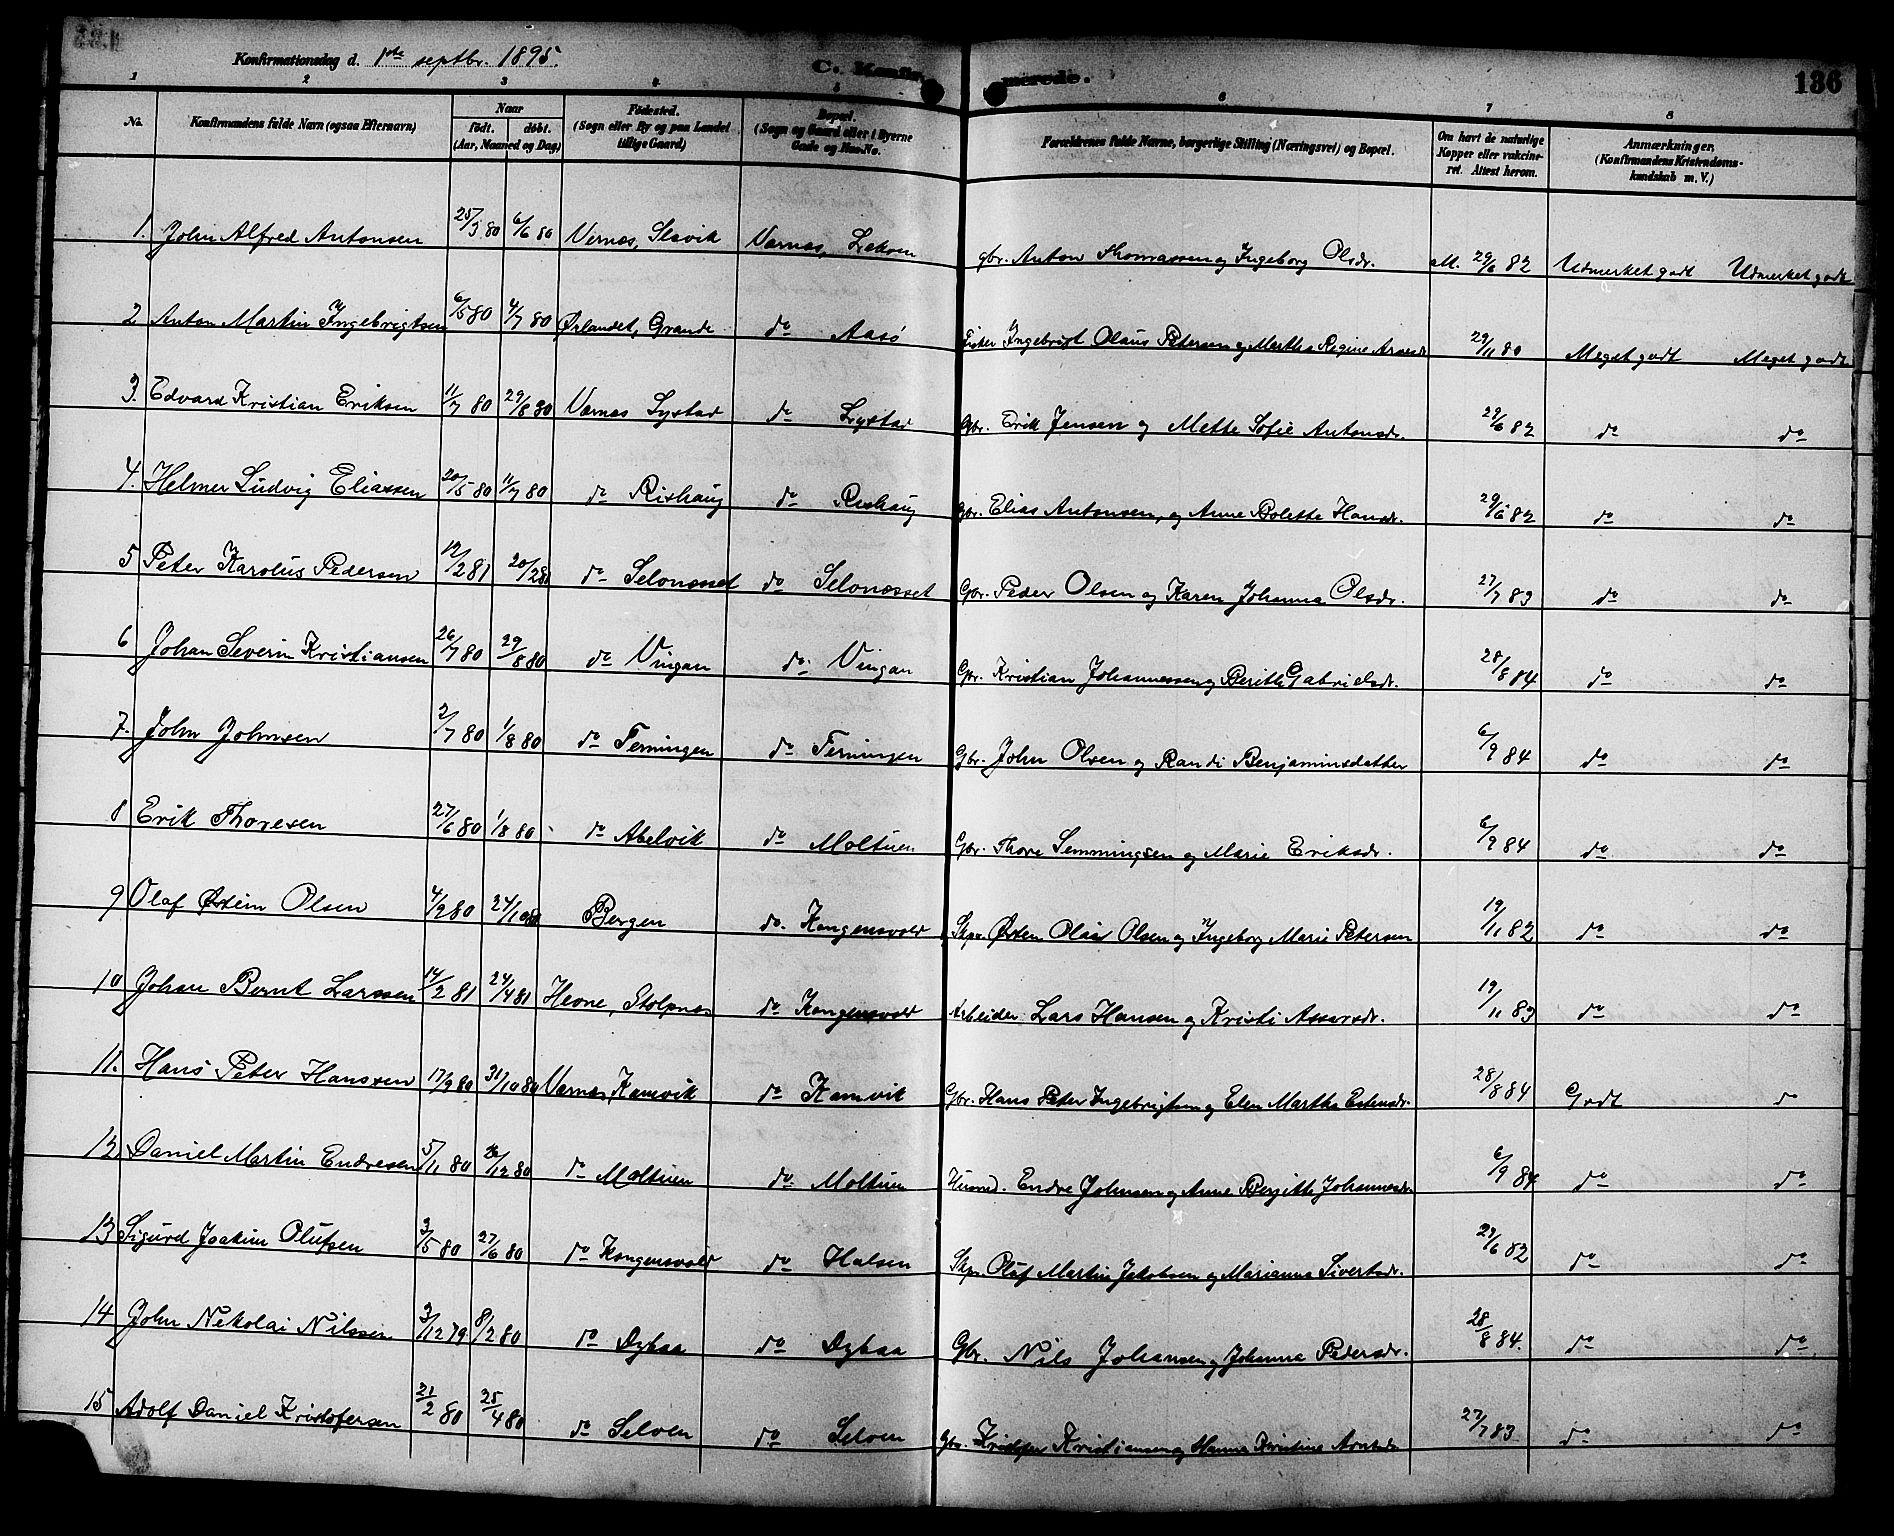 Konfirmationsdag d. 1ste septbr. 1895.
C. Konfirmerede.
136
1 2 3 4 5 6 7 8
No. Konfirmandens fulde Navn (ogsaa Efternavn) Naar født. døbt. (Aar, Maaned og Dag) Fødested. (Sogn eller By og paa Landet tillige Gaard) Bopæl. (Sogn og Gaard eller i Byerne Gade og Hus-No. Forældrenes fulde Navne, borgerlige Stilling (Næringsvei) og Bopæl. Om havt de naturlige Kopper eller vakcineret. Attest herom. Anmærkninger, (Konfirmandens Kristendomskundskab m. V.)
1. John Alfred Antonsen 25/3 80 6/6 80 Vernæs, Slavik Værnæs, gbr. Anton Thomassen og Ingeborg Olsdr. att. 29/6 82 Udmerket godt Udmerket godt
2 Anton Martin Ingebrigtsen 6/5 80 4/7 80 Ørlandet, Grande do Aasø Fisker Ingebrigt Olaus Petersen og Martha Regine 29/11 80 Meget godt Meget godt
3. Edvard Kristian Eriksen 11/7 80 29/8 80 Værnæs Lystad do Lystad Gbr. Erik Jensen og Mette Sofie Antonsdr. 29/6 82 do do
4. Helmer Ludvig Eliassen 20/5 80 11/7 80 do Rishaug do Rishaug Gbr. Elias Antonsen, og Anne Bolette Hansdr. 29/6 82 do do
5 Peter Karolus Pedersen 12/2 81 20/2 80 do Selonæsset do Selonæsset Gbr. Peder Olsen og Karen Johanna Olsdr. 27/7 83 do do
6 Johan Severin Kristiansen 26/7 80 29/8 80 do Vingan do. Vingan Gbr. Kristian Johannessen og Berith Gabrielsdr. 28/8 84 do do
7. John Johnsen 2/7 80 1/8 80 do Terningen do Terningen Gbr. John Olsen og Randi Benjaminsdatter 6/9 84 do do
8 Erik Thoresen 27/6 80 1/8 80 do Abelvik do Moltuen Gbr. Thore Semmingsen og Marie Eriksdr. 6/9 84 do do
9 Olaf Østein Olsen 4/9 80 24/10 80 Bergen do. Kongensvold Skpr. Østen Olai Olsen og Ingeborg Marie Petersen 19/11 82 do do
10 Johan Bernt Larssen 14/2 81 24/4 81 Hevne, Stolpnes do Kongensvold Arbeider Lars Hansen og Kristi Assersdr. 19/11 83 do do
11. Hans Peter Hanssen 17/9 80 31/10 80 Værnæs, Kamvik do Kamvik Gbr. Hans Peter Ingebrigtsen og Elen Martha Estensdr. 28/8 84 Godt do
12 Daniel Martin Endresen 5/11 80 26/12 80 do Moltuen do Moltuen Husmd. Endre Johnsen og Anne Bergitte Johannesdr 6/9 84 do do
13 Sigurd Joakim Olufsen 2/5 80 27/6 80 do Kongensvold do Halsen Skpr. Oluf Martin Jakobsen og Marianna Sivertsdr. 29/6 82 do do
14 John Nekolai Nilssen 3/12 79 8/2 80 do Dybaa do Dybaa Gbr. Nils Johansen og Johanna Pedersdr. 28/8 84. do do
15 Adolf Daniel Kristofersen 21/2 80 25/4 80 do Selven do Selven Gbr. Kristofer Kristiansen og Hanna Kristine Arntsdr 27/7 83 do do